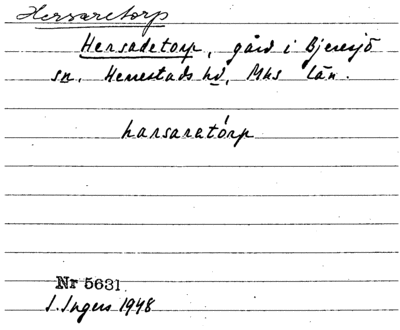 Hersaretorp
Hersadetorp, gård i Bjeresjö
sn, Herrestads hd, Mhs län.
harsaratórp
Nr 5631.
I. Ingers 1948